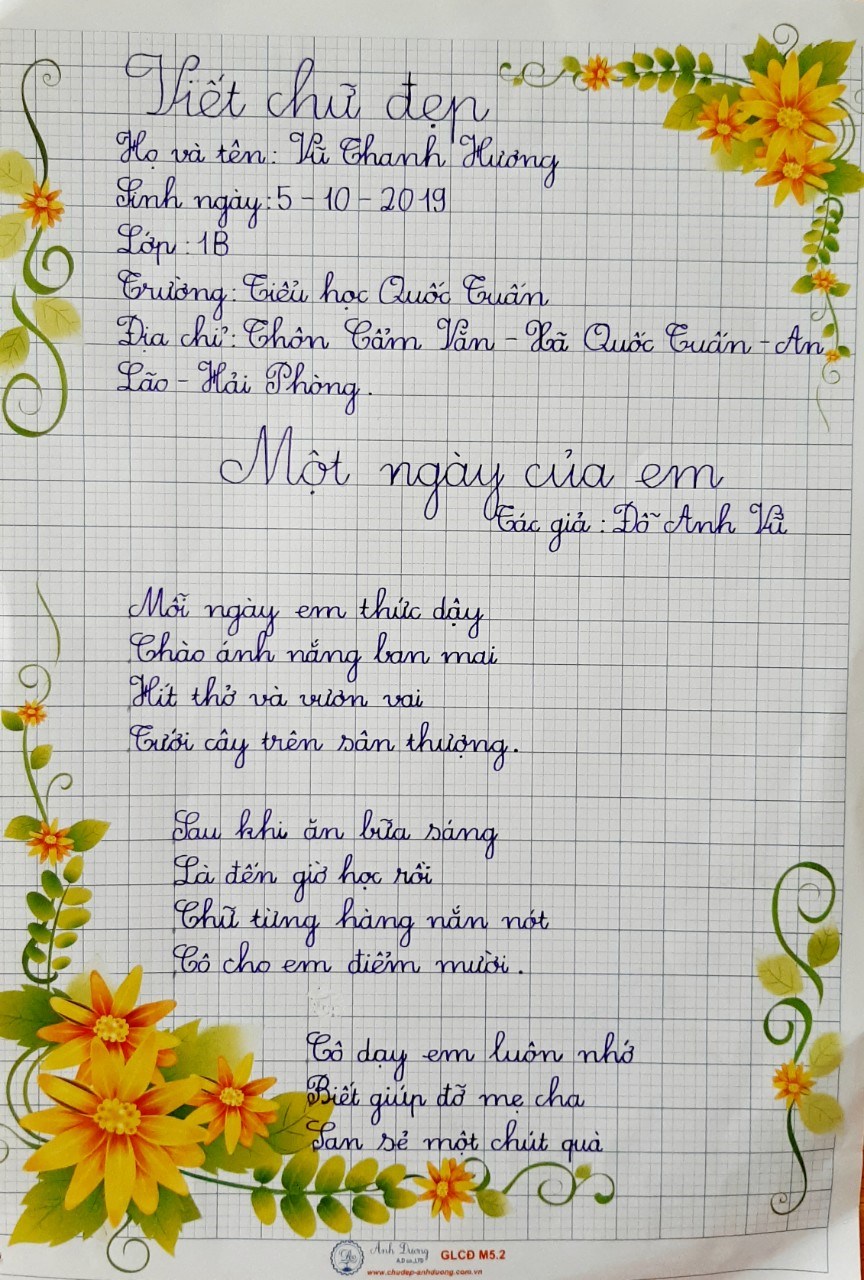 Viết chữ đẹp
Họ và tên: Vũ Thanh Hương
Sinh ngày: 5 - 10 - 2019
Lớp: 1B
Trường: Tiểu học Quốc Tuấn
Địa chỉ: Thôn Cẩm Văn - Xã Quốc Tuấn - An
Lão - Hải Phòng.
Một ngày của em
Tác giả: Đỗ Anh Vũ
Mỗi ngày em thức dậy
Chào ánh nắng ban mai
Hít thở và vươn vai
Tưới cây trên sân thượng.
Sau khi ăn bữa sáng
Là đến giờ học rồi
Chữ từng hàng nắn nót
Cô cho em điểm mười.
Cô dạy em luôn nhớ
Biết giúp đỡ mẹ cha
San sẻ một chút quà
Anh Dương
GLCĐ M5.2
www.chudep-anhduong.com.vn